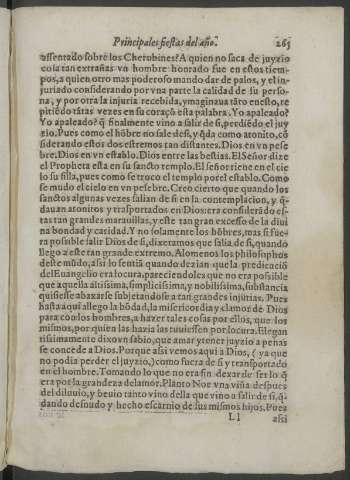 Principales fiestas del año. 265
assentado sobre los Cherubines? A quien no saca de juyzio
cosa tan extrañas vn hombre honrado fue en estos tiem-
pos, a quien otro mas poderoso mando dar de palos, y el in-
juriado considerando por vna parte la calidad de su perso-
na, y por otra la injuria recebida, ymaginaua táto en esto, re
pitiēdo tátas vezes en su coraçō esta palabra. Yo apaleado?
Yo apaleado? q̃ finalmente vino a salir de si, perdiēdo el juy
zio. Pues como el hōbre no sale desi, y q̃da como atonito, cō
siderando estos dos estremos tan distantes. Dios en vn pese
bre. Dios en vn establo. Dios entre las bestias. El Señor dize
el Propheta esta en su sancto templo. El señor tiene en el cie
lo su silla, pues como se troco el templo por el establo. Como
se mudo el cielo en vn pesebre. Creo cierto que quando los
sanctos algunas vezes salian de si en la contemplacion, y q̃-
dauan atonitos y trasportados en Dios: era considerādo es-
tas tan grandes marauillas, y este tan gran excesso de la diui
na bondad y caridad. Y no solamente los hōbres, mas si fue-
ra possible salir Dios de si, dixeramos que salia de si, quando
llego a este tan grande extremo. Alomenos los philosophos
deste mūdo, assi lo sentiā quando dezian que la predicaciō
del Euangelio era locura, pareciendoles que no era possible
que aquella altissima, simplicissima, y nobilissima, substancia
quisiesse abaxarse subjetandose a tan grandes injurias. Pues
hasta aqui allego la bōdad, la misericordia y clamor de Dios
para con los hombres, a hazer tales cosas por ellos, que los
mismos, por quien las hazia las tuuiessen por locura. Elegan
tissimamente dixo vn sabio, que amar y tener juyzio a penas
se concede a Dios. Porque assi vemos aqui a Dios, (ya que
no podia perder el juyzio,) como fuera de si y transportado
en el hombre. Tomando lo que no era sin dexar de ser lo q̃
era por la grandeza del amor. Planto Noe vna viña despues
del diluuio, y beuio tanto vino della que vino a salir de si, q̃-
dando desnudo y hecho escarnio de sus mismos hijos. Pues
Ll assi